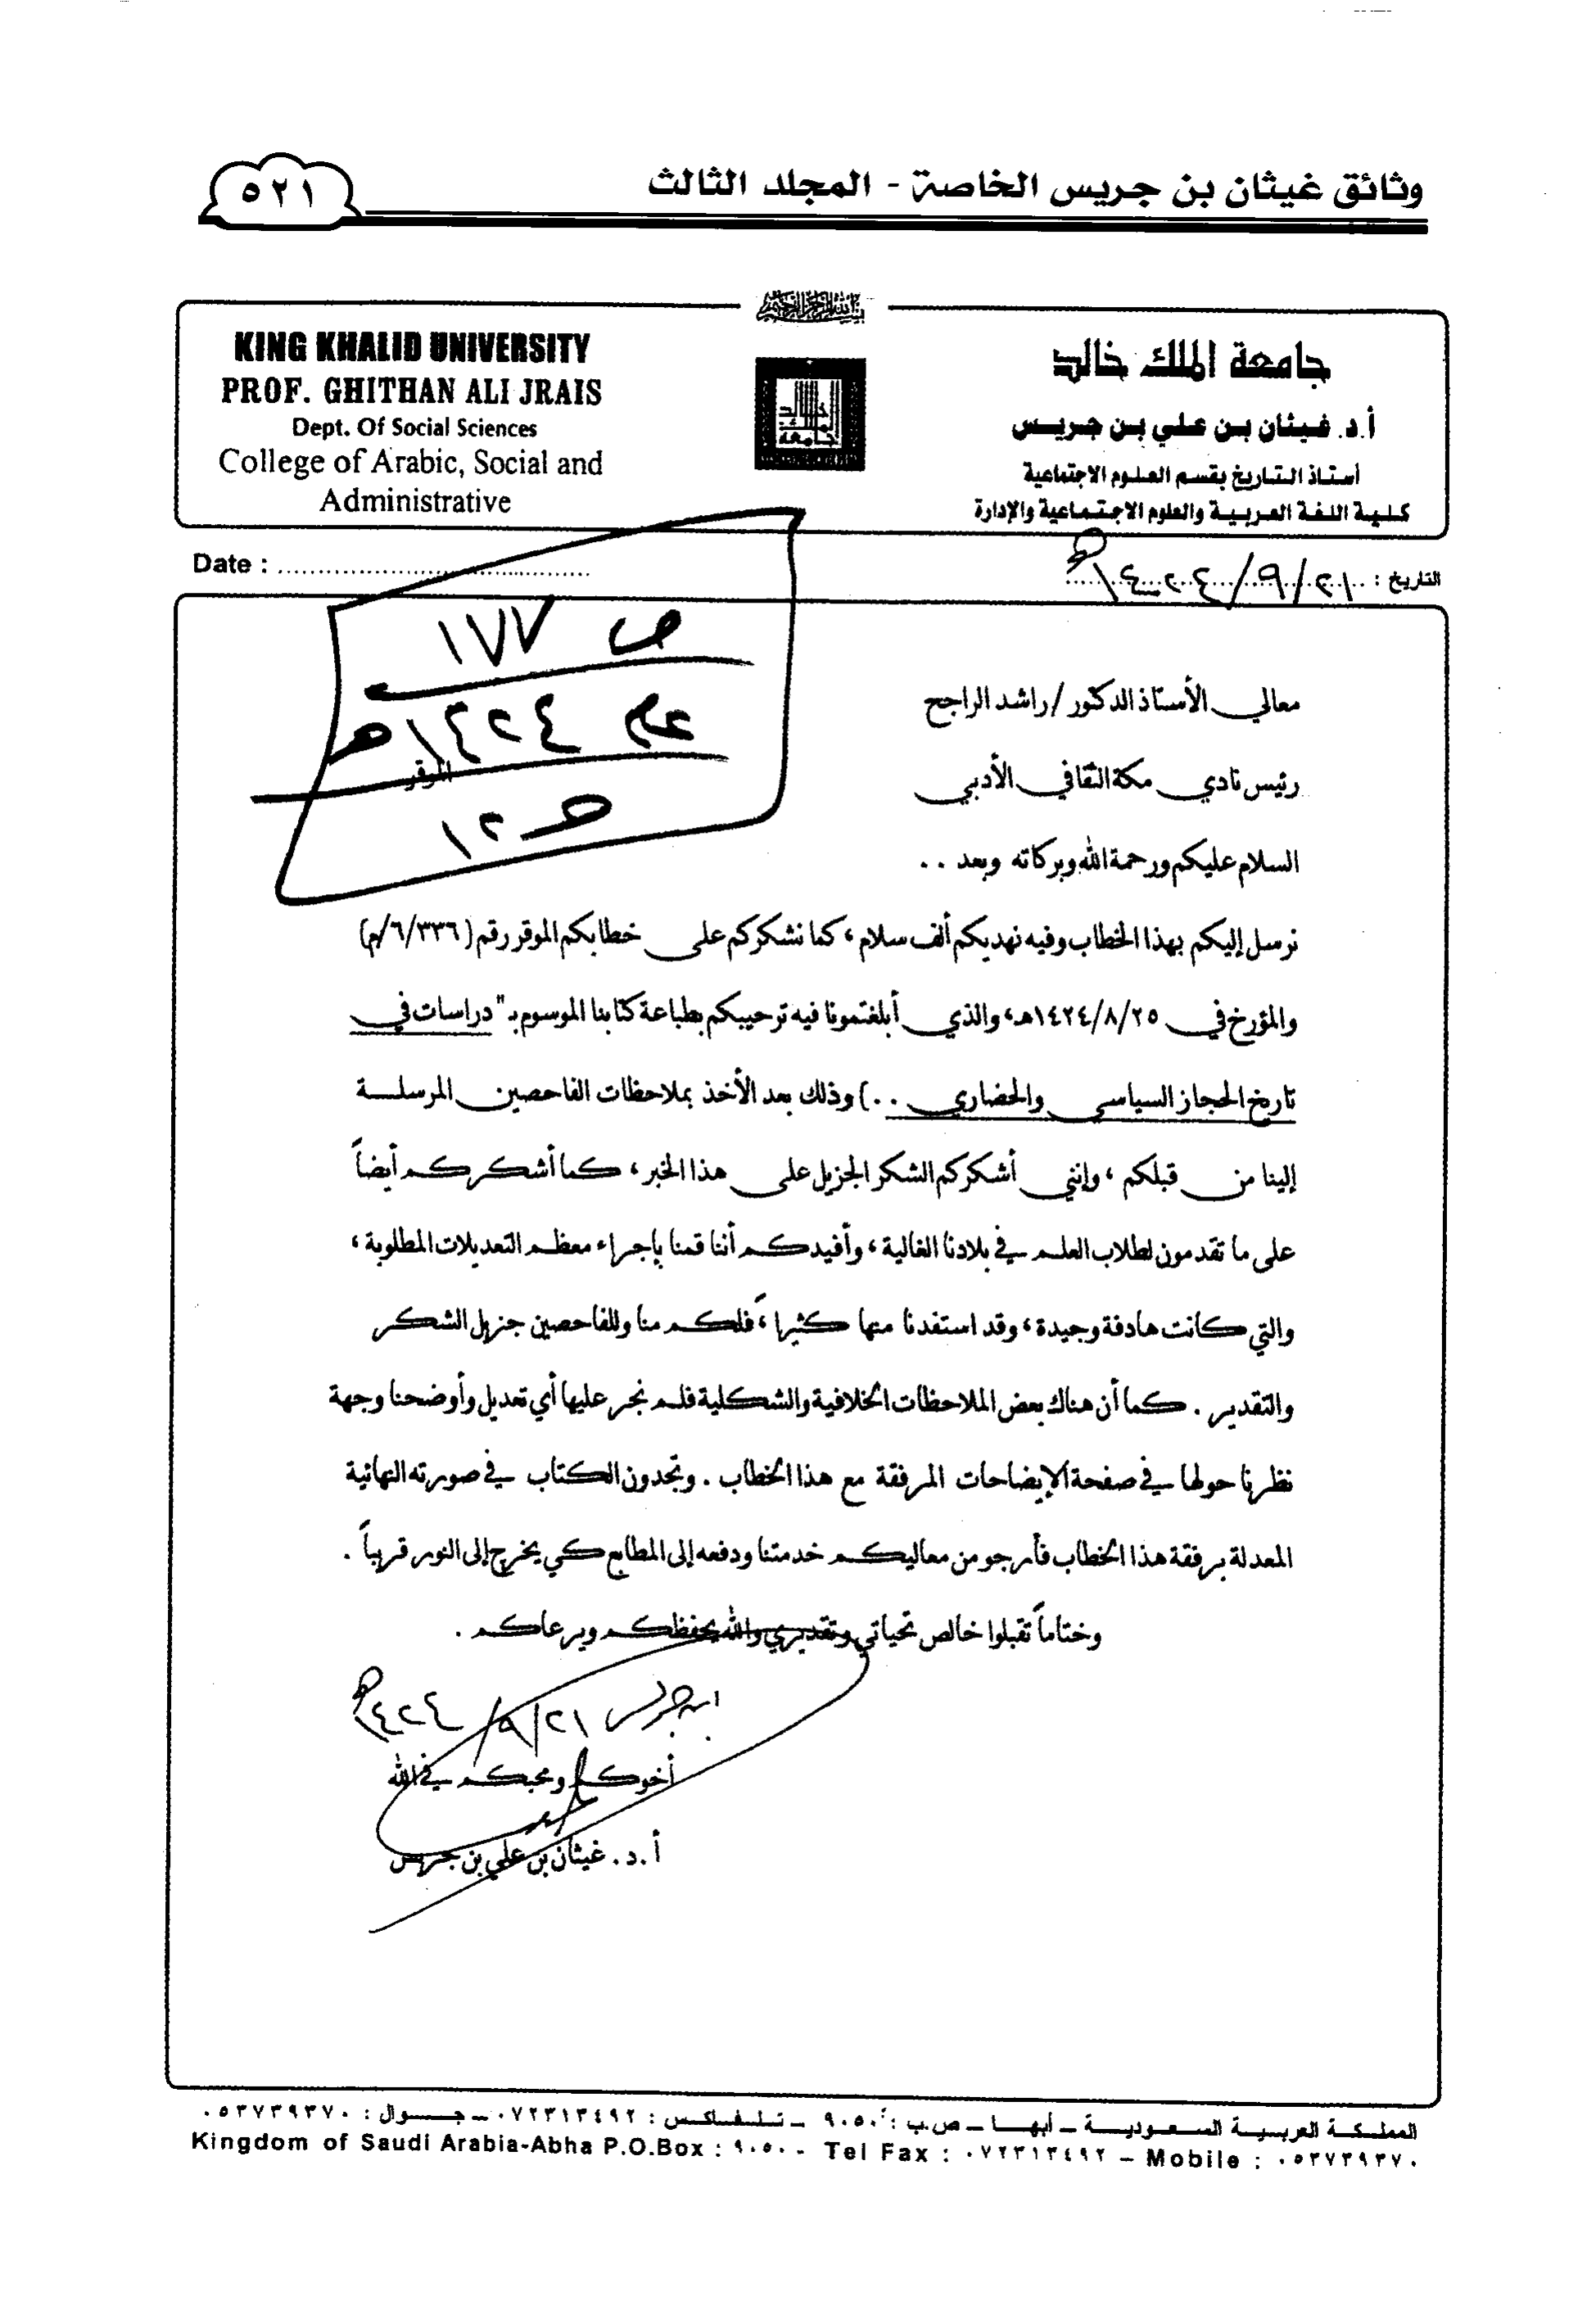 وثائق غيثان بن جريس الخاصة - المجلد الثالث
٥٢١
بسم الله الرحمن الرحيم
KING KHALID UNIVERSITY
PROF. GHITHAN ALI JRAIS
Dept. Of Social Sciences
College of Arabic, Social and
Administrative
جامعة الملك خالد
جامعة الملك خالد
أ.د. غيثان بن علي بن جريس
أستاذ التاريخ بقسم العلوم الاجتماعية
كلية اللغة العربية والعلوم الاجتماعية والإدارة
Date : ....................................
التاريخ : ٢١/٩/١٤٢٤هـ
ص ١٧٧
عام ١٤٢٤هـ
معالي الأستاذ الدكتور / راشد الراجح
رئيس نادي مكة الثقافي الأدبي الموقر
السلام عليكم ورحمة الله وبركاته وبعد . .
نرسل إليكم بهذا الخطاب وفيه نهديكم ألف سلام ، كما نشكركم على خطابكم الموقر رقم ( ٦/٣٣٦/م)
والمؤرخ في ١٤٢٤/٨/٢٥هـ، والذي أبلغتمونا فيه ترحيبكم بطباعة كتابنا الموسوم بـ " دراسات في
تاريخ الحجاز السياسي والحضاري . . ) وذلك بعد الأخذ بملاحظات الفاحصين المرسلة
إلينا من قبلكم ، وإنني أشكركم الشكر الجزيل على هذا الخبر ، كما أشكركم أيضاً
على ما تقدمون لطلاب العلم في بلادنا الغالية ، وأفيدكم أننا قمنا بإجراء معظم التعديلات المطلوبة ،
والتي كانت هادفة وجيدة ، وقد استفدنا منها كثيراً ، فلكم منا وللفاحصين جزيل الشكر
والتقدير . كما أن هناك بعض الملاحظات الخلافية والشكلية فلم نجر عليها أي تعديل وأوضحنا وجهة
نظرنا حولها في صفحة الإيضاحات المرفقة مع هذا الخطاب . وتجدون الكتاب في صورته النهائية
المعدلة برفقة هذا الخطاب فأرجو من معاليكم خدمتنا ودفعه إلى المطابع كي يخرج إلى النور قريباً .
وختاماً تقبلوا خالص تحياتي وتقديري والله يحفظكم ويرعاكم .
ابن جريس ٢١/٩/١٤٢٤هـ
أخوكم ومحبكم في الله
أ.د. غيثان بن علي بن جريس
المملكة العربية السعودية – أبها – ص.ب : ٩٠٥٠ – تلفاكس : ٠٧٢٣١٣٤٩٢ – جوال : ٠٥٣٧٣٩٣٧٠
Kingdom of Saudi Arabia-Abha P.O.Box : ٩٠٥٠ - Tel Fax : ٠٧٢٣١٣٤٩٢ – Mobile : ٠٥٣٧٣٩٣٧٠